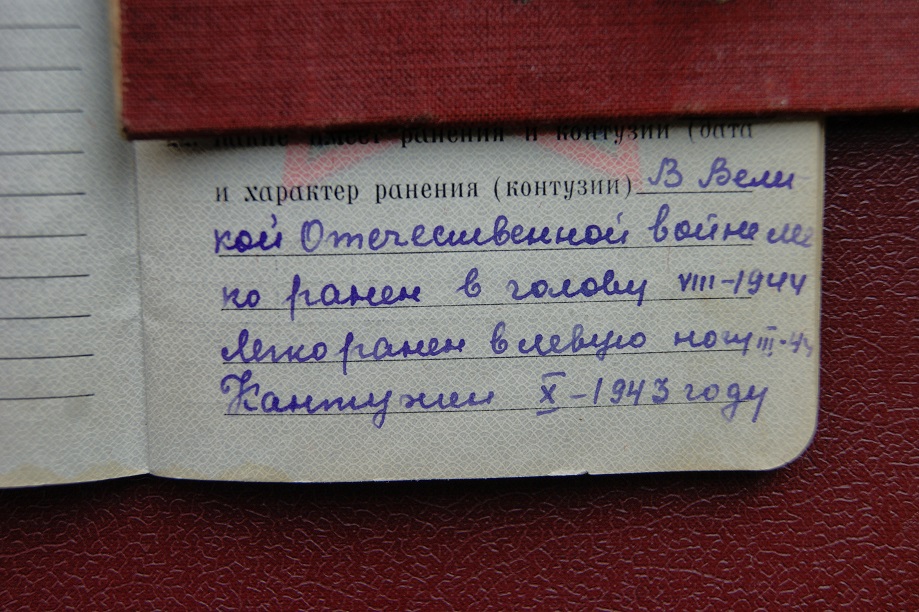 какие имеет ранения и контузии (дата
и характер ранения (контузии) В Вели
кой Отечественной войне лег
ко ранен в голову VIII-1944
Легко ранен в левую ногу III-44
X-1943 году